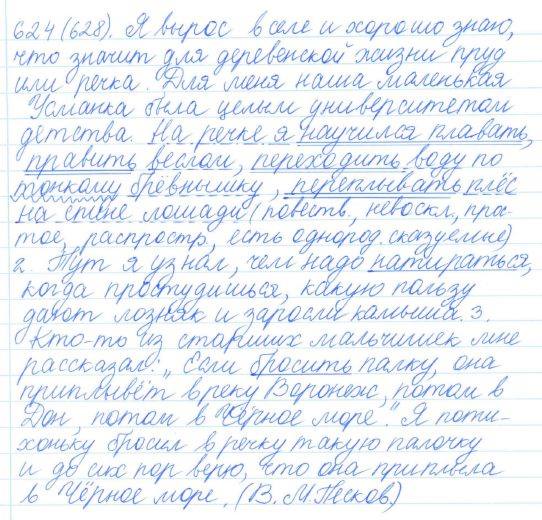 624(628). Я вырос в селе и хорошо знаю,
что значит для деревенской жизни пруд
или речка. Для меня наша маленькая
Усманка была целым университетом
детства. На речке я научился плавать,
править веслом, переходить воду по
тонкому брёвнышку, переплывать плёс
на спине лошади (повеств., невоскл., прос-
тое, распростр., есть однород. сказуемые)
2. Тут я узнал, чем надо натираться,
когда простудишься, какую пользу
дают лозняк и заросли камыша. 3.
Кто-то из старших мальчишек мне
рассказал: „Если бросить палку, она
приплывёт в реку Воронеж, потом в
Дон, потом в Чёрное море". Я поти-
хоньку бросил в речку такую палочку
и до сих пор верю, что она приплыла
в Чёрное море. (В. М. Песков)